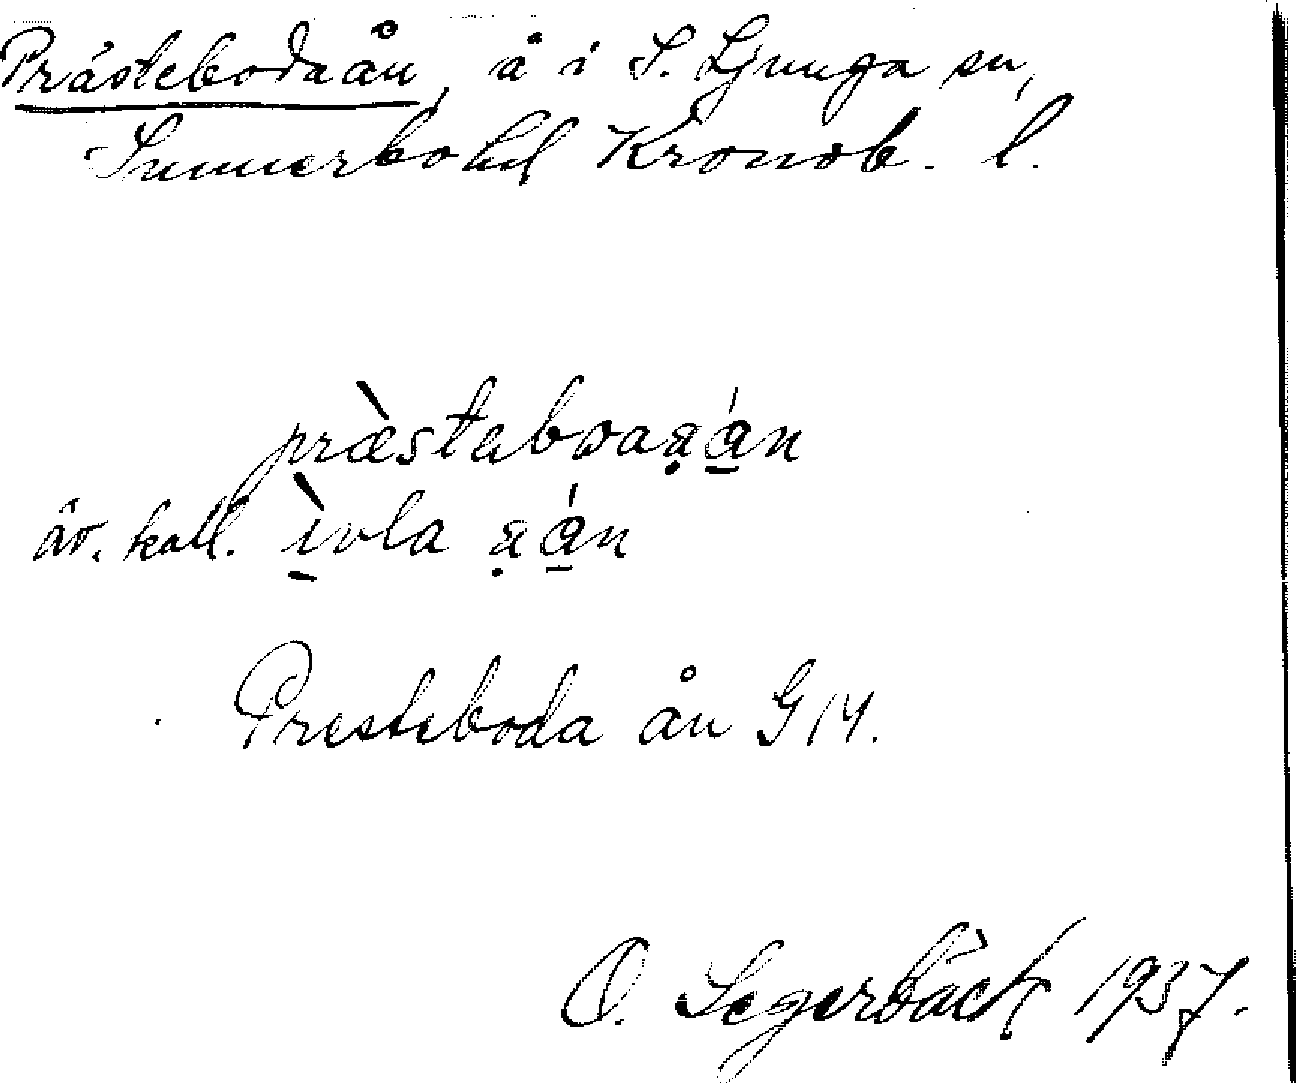 Prästebodaån, å i S. Ljunga sn,
Sunnerbo hd Kronob. l.
præ̀stabωaa̤án
äv. kall. ìvla a̤án
Presteboda ån G 14.
O. Segerbäck 1937.